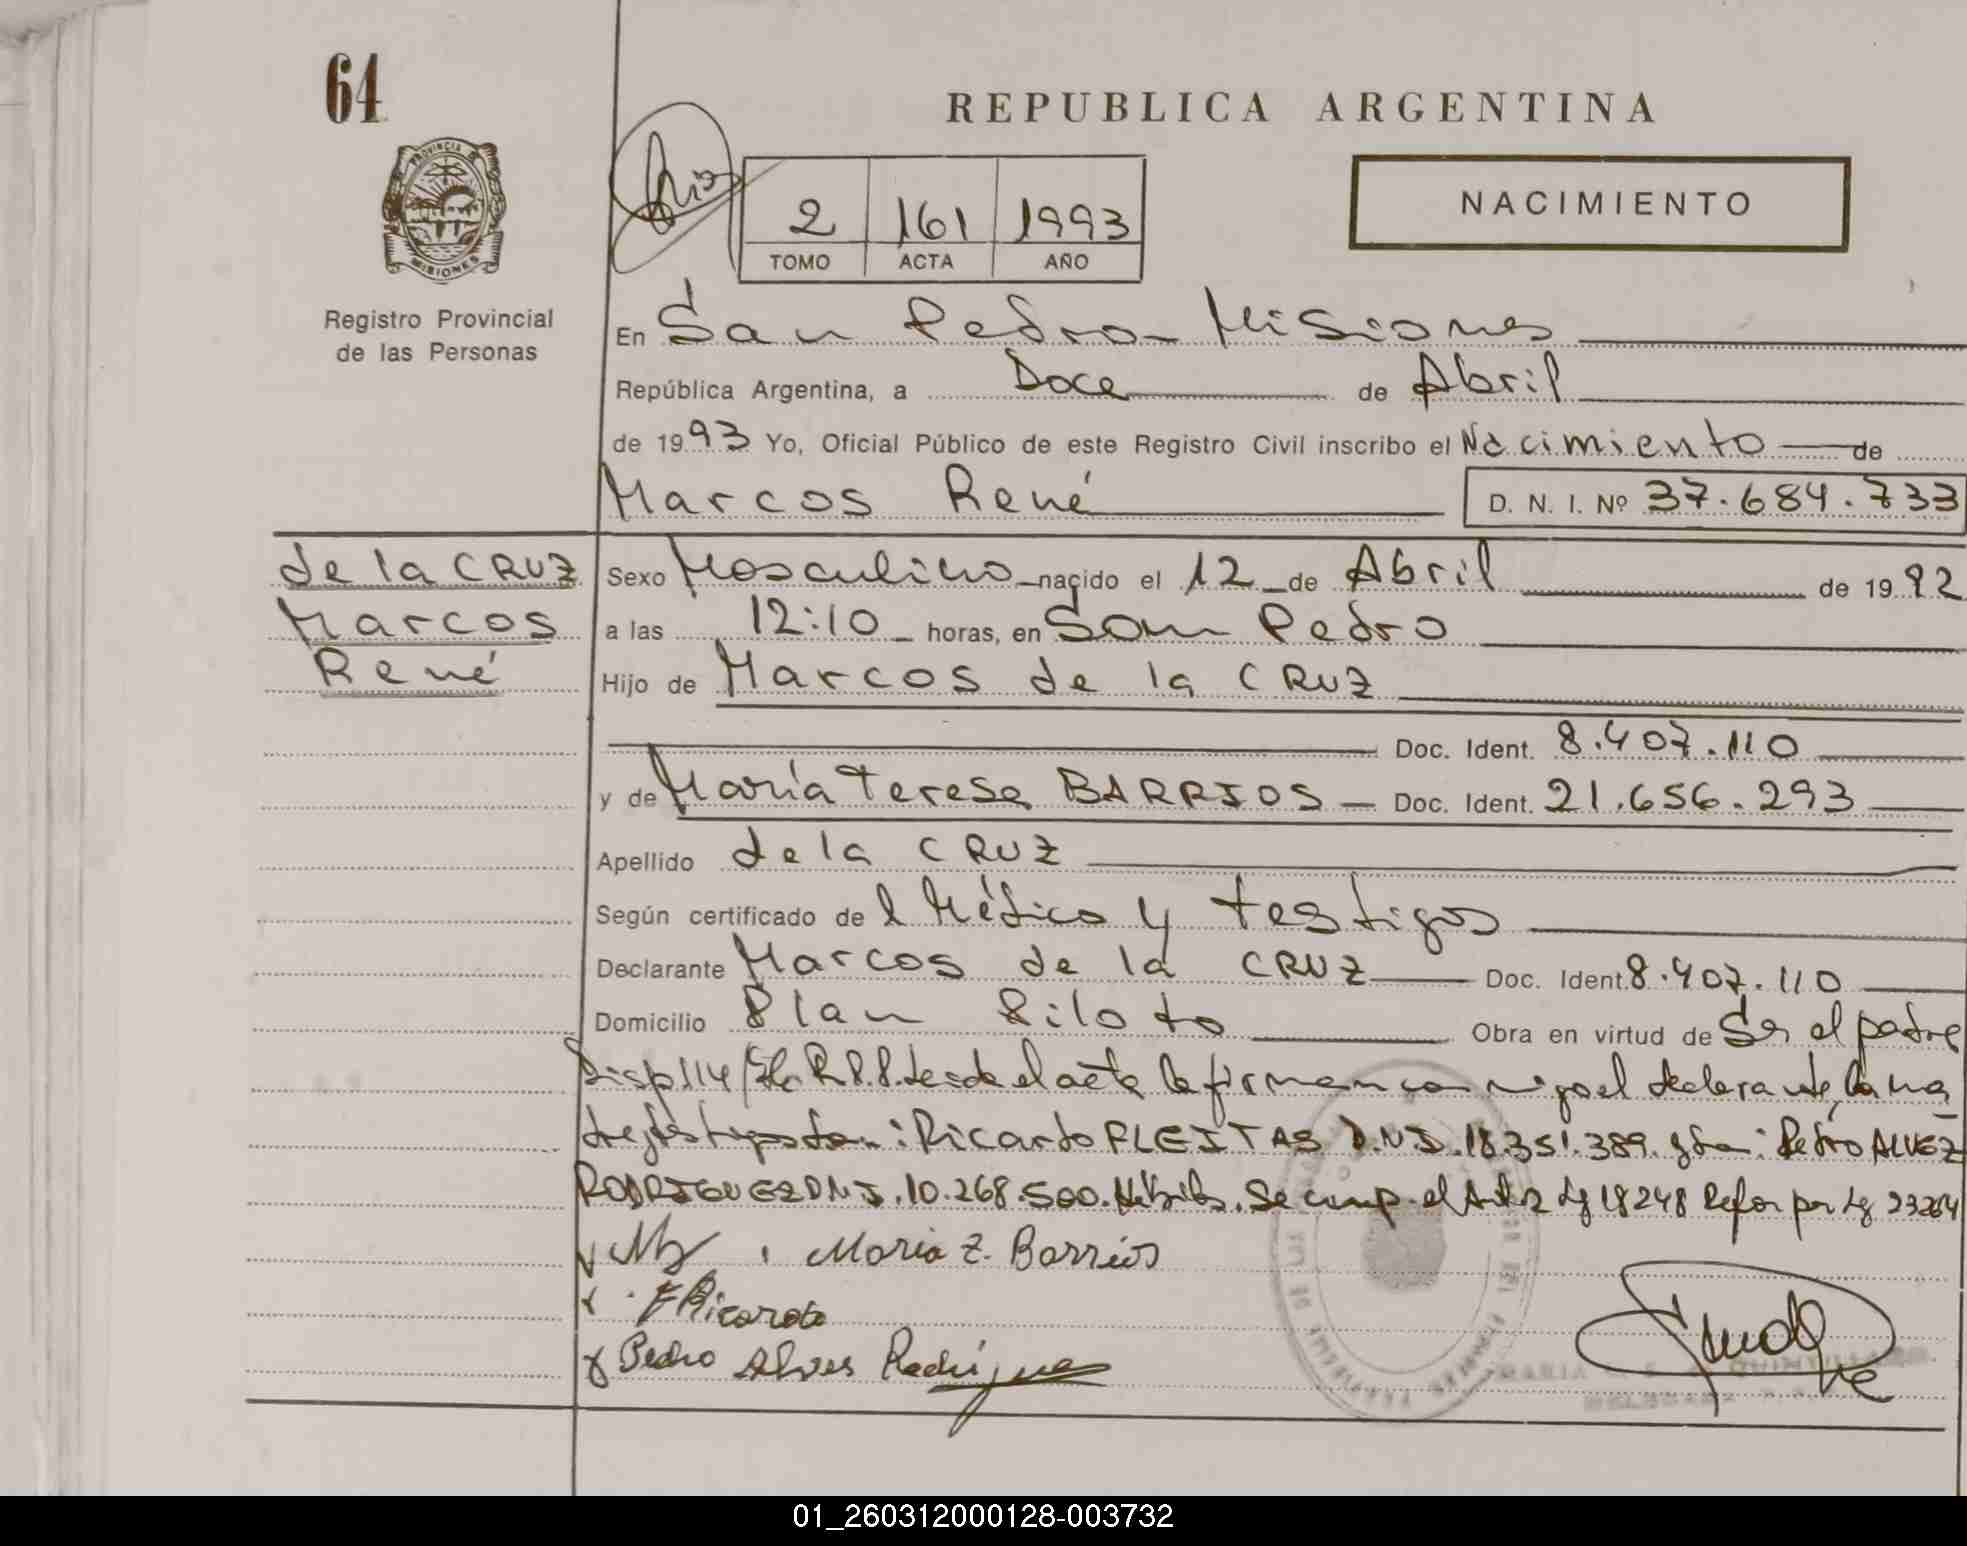 64
REPUBLICA ARGENTINA
PROVINCIA D
MISIONES
Registro Provincial
de las Personas
2 161 1993
TOMO ACTA AÑO
NACIMIENTO
En San Pedro - Misiones
República Argentina, a Doce de Abril
de 1993 Yo, Oficial Público de este Registro Civil inscribo el Nacimiento de
Marcos René D. N. I. Nº 37.684.733
de la CRUZ
Marcos
René
Sexo Masculino nacido el 12 de Abril de 1992
a las 12:10 horas, en San Pedro
Hijo de Marcos de la CRUZ
Doc. Ident. 8.407.110
y de María Teresa BARRIOS - Doc. Ident. 21.656.293
Apellido de la CRUZ
Según certificado del Médico y testigos
Declarante Marcos de la CRUZ Doc. Ident. 8.407.110
Domicilio Plan Piloto Obra en virtud de Ser el padre
Disp 114 R.P.P. Leida el acta la firman conmigo el declarante, la ma
dre, testigos Don: Ricardo FLEITAS D.N.I. 18.351.389. y Don: Pedro ALVEZ
RODRIGUEZ D.N.I. 10.268.500. Hábiles. Se cump. el Art. 2 Ly 18248 Refor por Ly 23264
Maria T. Barrios
F Ricardo
Pedro Alves Rodrigues
01_260312000128-003732